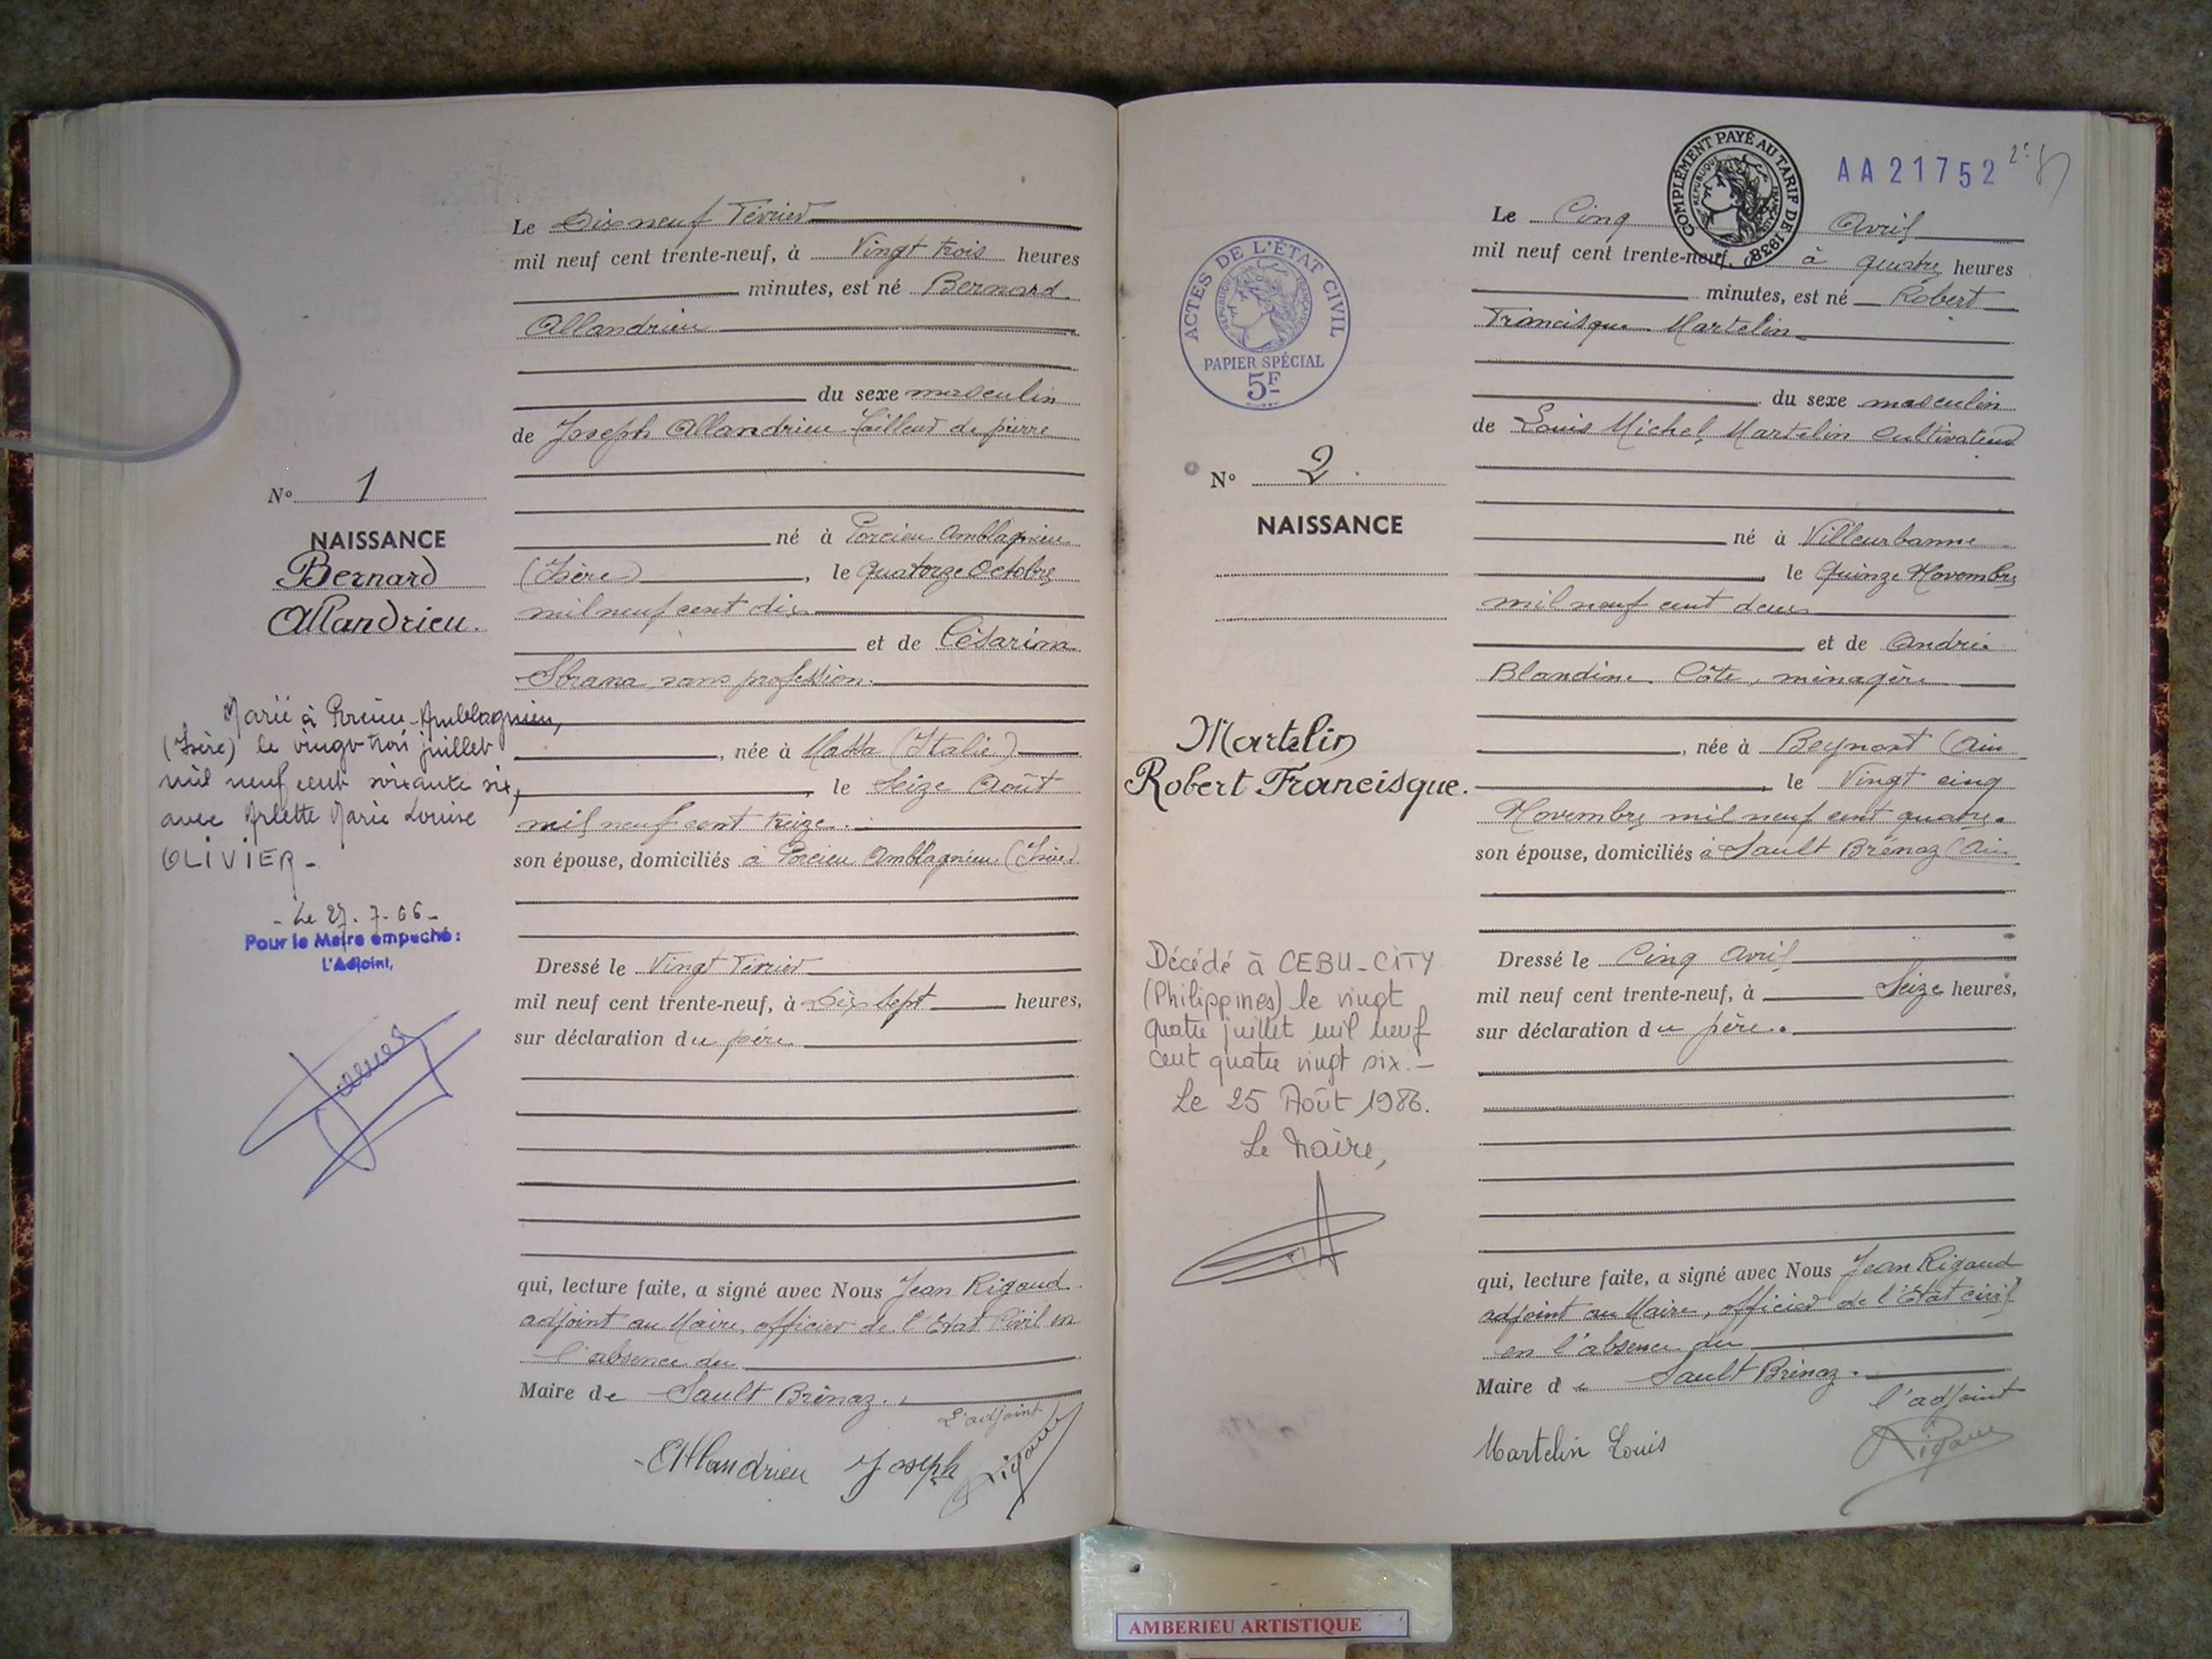 Le Dix neuf Février
mil neuf cent trente-neuf, à Vingt trois heures
minutes, est né Bernard
Allandrieu
du sexe masculin
de Joseph Allandrieu Tailleur de pierre
né à Porcieu Amblagnieu
(Isère), le quatorze Octobre
mil neuf cent dix
et de Césarina
Sbrana sans profession.
, née à Massa (Italie)
, le Seize Août
mil neuf cent treize.
son épouse, domiciliés à Porcieu Amblagnieu (Isère)
Dressé le Vingt Février
mil neuf cent trente-neuf, à Dix Sept heures,
sur déclaration du père
qui, lecture faite, a signé avec Nous Jean Rigaud
adjoint au Maire, officier de l'Etat Civil en
l'absence du
Maire de Sault Brénaz.
L'adjoint
Allandrieu Joseph Rigaud
No 1
NAISSANCE
Bernard
Allandrieu.
Marié à Porcieu-Amblagnieu,
(Isère) le vingt trois juillet
mil neuf cent soixante six,
avec Arlette Marie Louise
OLIVIER -
- Le 27. 7. 66 -
Pour le Maire empeché :
L'Adjoint,
COMPLÉMENT PAYÉ AU TARIF DE 1938
AA21752
Le Cinq Avril
mil neuf cent trente-neuf, à quatre heures
minutes, est né Robert
Francisque Martelin
du sexe masculin
de Louis Michel Martelin Cultivateur
né à Villeurbanne
le Quinze Novembre
mil neuf cent deux
et de Andrée
Blandine Côte, ménagère
, née à Beynost (Ain
, le Vingt cinq
Novembre mil neuf cent quatre.
son épouse, domiciliés à Sault Brénaz (Ain
Dressé le Cinq Avril
mil neuf cent trente-neuf, à Seize heures,
sur déclaration du père.
qui, lecture faite, a signé avec Nous Jean Rigaud
adjoint au Maire, officier de l'Etat civil
en l'absence du
Maire de Sault Brénaz.
l'adjoint
Martelin Louis Rigaud
ACTES DE L'ÉTAT CIVIL
RÉPUBLIQUE FRANÇAISE
PAPIER SPÉCIAL
5F
No 2.
NAISSANCE
Martelin
Robert Francisque.
Décédé à CEBU-CITY
(Philippines) le vingt
quatre juillet mil neuf
cent quatre vingt six.-
Le 25 Août 1986.
Le Maire,
AMBERIEU ARTISTIQUE